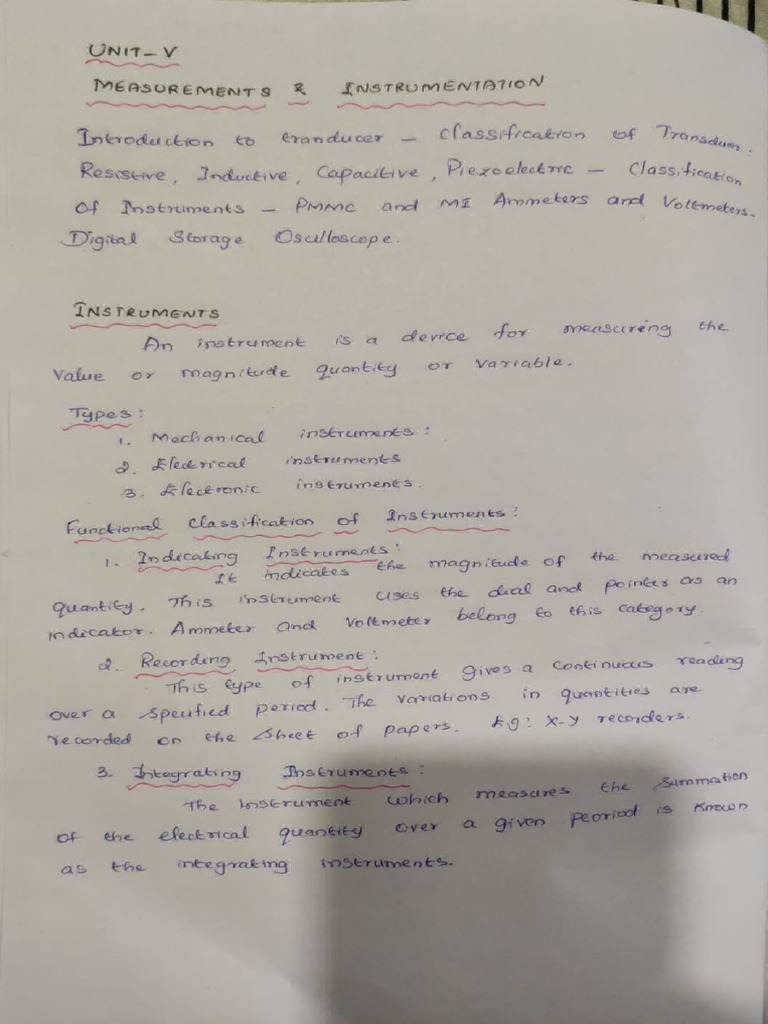 UNIT-V
MEASUREMENTS & INSTRUMENTATION
Introduction to tranducer - Classification of Transducer.
Resistive, Inductive, Capacitive, Piezoelectric - Classification
Of Instruments - PMMC and MI Ammeters and Voltmeters.
Digital Storage Oscilloscope.
INSTRUMENTS
An instrument is a device for measuring the
value or magnitude quantity or variable.
Types:
1. Mechanical instruments:
2. Electrical instruments
3. Electronic instruments.
Functional Classification of Instruments:
1. Indicating Instruments:
It indicates the magnitude of the measured
quantity. This instrument uses the dial and pointer as an
indicator. Ammeter and Voltmeter belong to this category.
2. Recording Instrument:
This type of instrument gives a continuous reading
over a specified period. The variations in quantities are
recorded on the sheet of papers. E.g: X-Y recorders.
3. Integrating Instruments:
The instrument which measures the summation
of the electrical quantity over a given peoriod is known
as the integrating instruments.